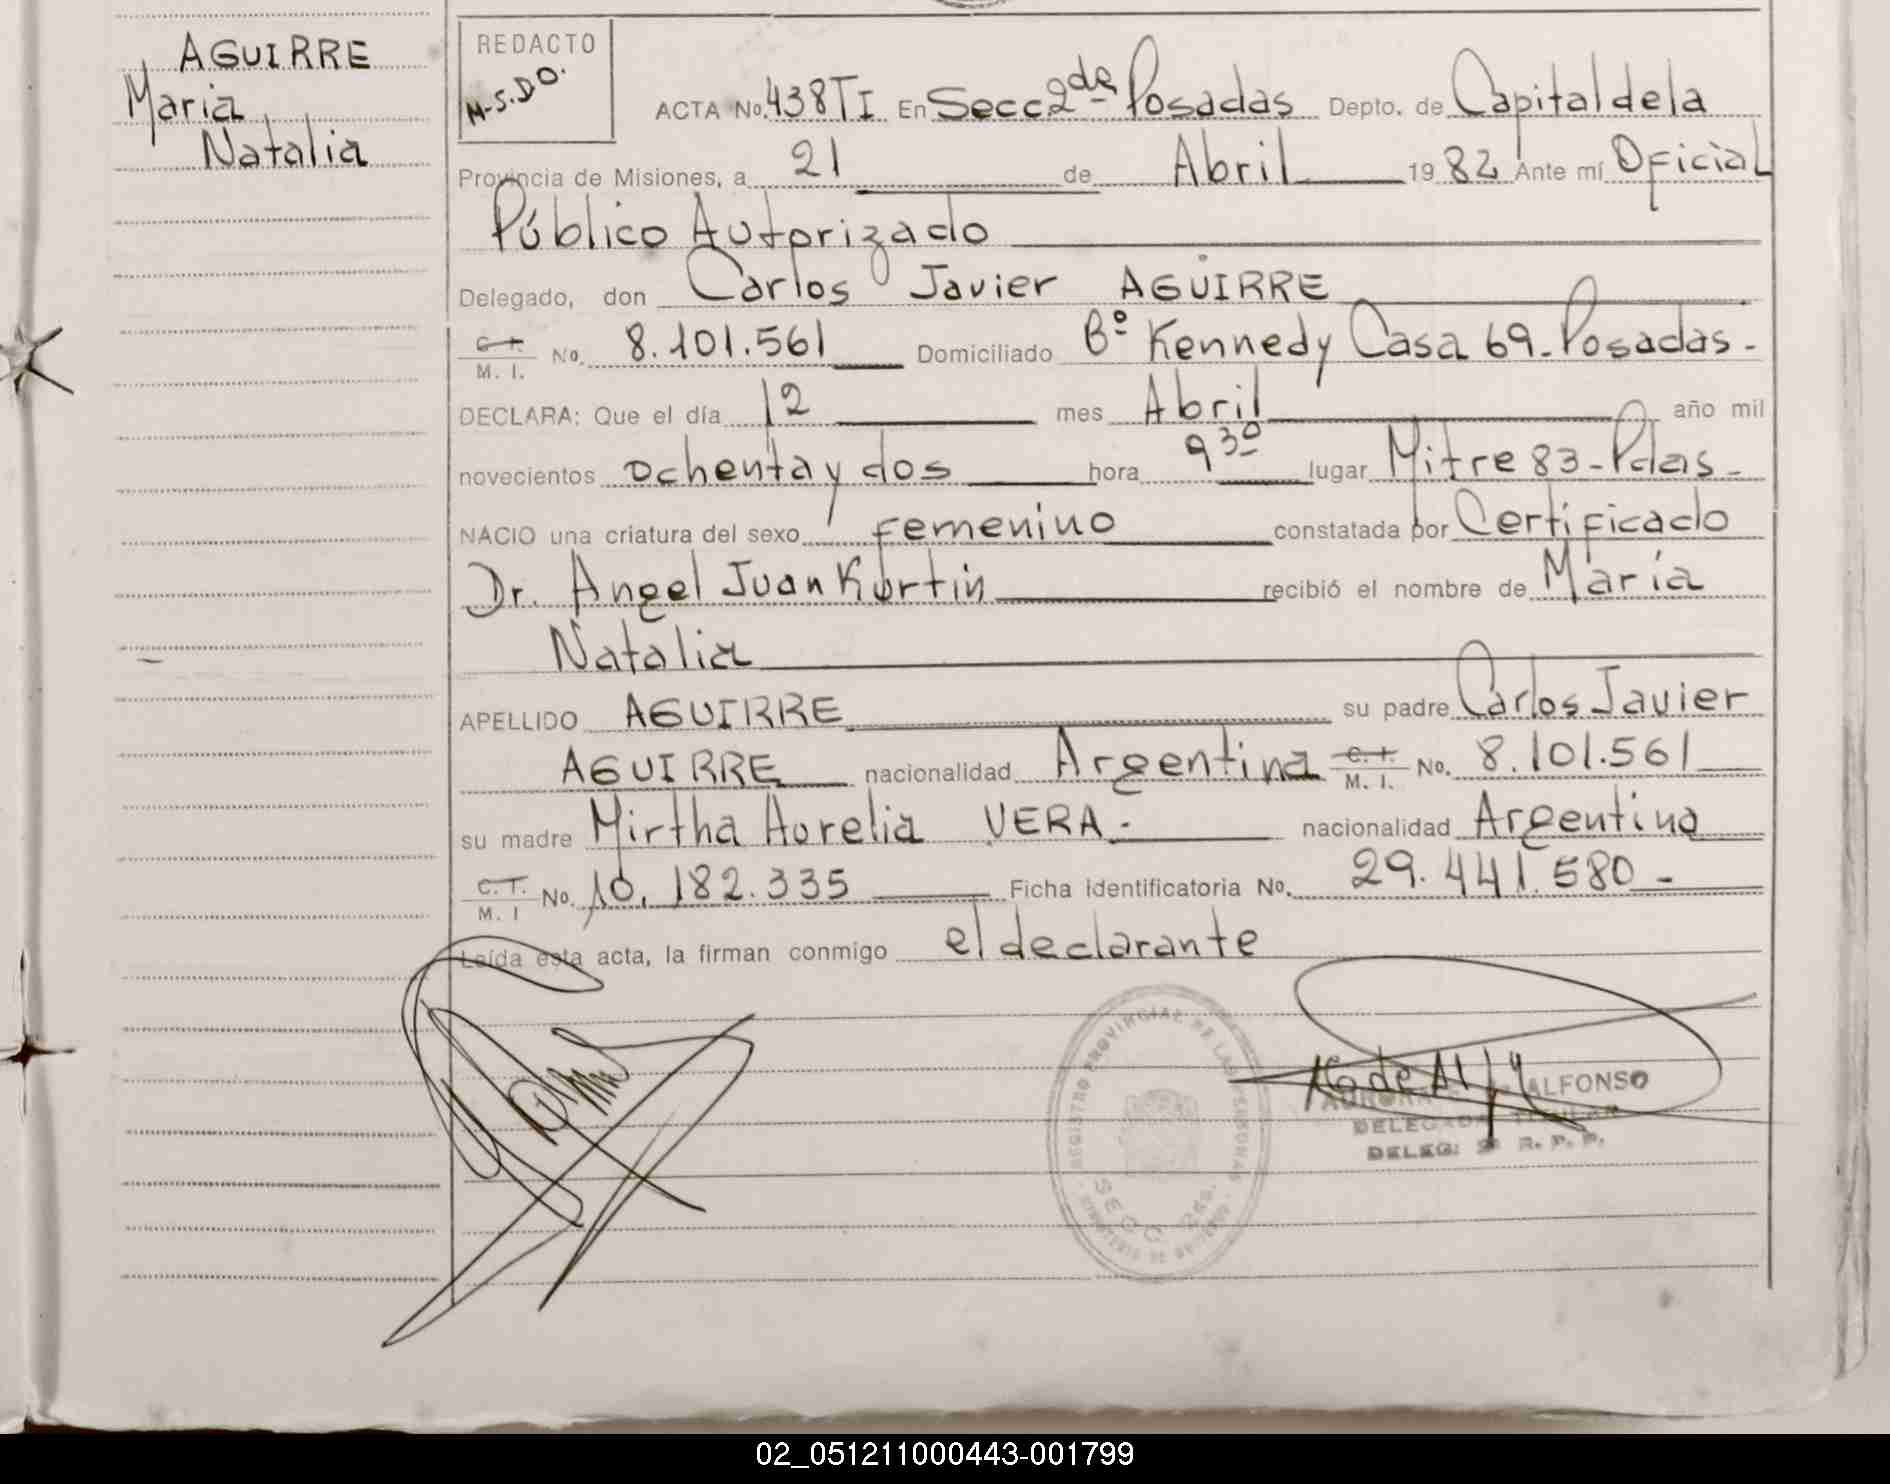 AGUIRRE
Maria
Natalia
REDACTO
M-S.DO.
ACTA No. 438 TI En Secc 2da Posadas Depto. de Capital de la
Provincia de Misiones, a 21 de Abril 1982 Ante mí Oficial
Público Autorizado
Delegado, don Carlos Javier AGUIRRE
C.I. M. I. No. 8.101.561 Domiciliado Bº Kennedy Casa 69-Posadas-
DECLARA: Que el día 12 mes Abril año mil
novecientos ochenta y dos hora 9 30 lugar Mitre 83-Pdas-
NACIO una criatura del sexo femenino constatada por Certificado
Dr. Angel Juan Kurtin recibió el nombre de María
Natalia
APELLIDO AGUIRRE su padre Carlos Javier
AGUIRRE nacionalidad Argentina C.I. M. I. No. 8.101.561
su madre Mirtha Aurelia VERA- nacionalidad Argentina
C.I. M. I No. 10.182.335 Ficha identificatoria No. 29.441.580-
Leída esta acta, la firman conmigo el declarante
REGISTRO PROVINCIAL DE LAS PERSONAS
SECC. 2da.
ALFONSO
DELEGADA TITULAR
DELEG: 2ª R. P. P.
02_051211000443-001799